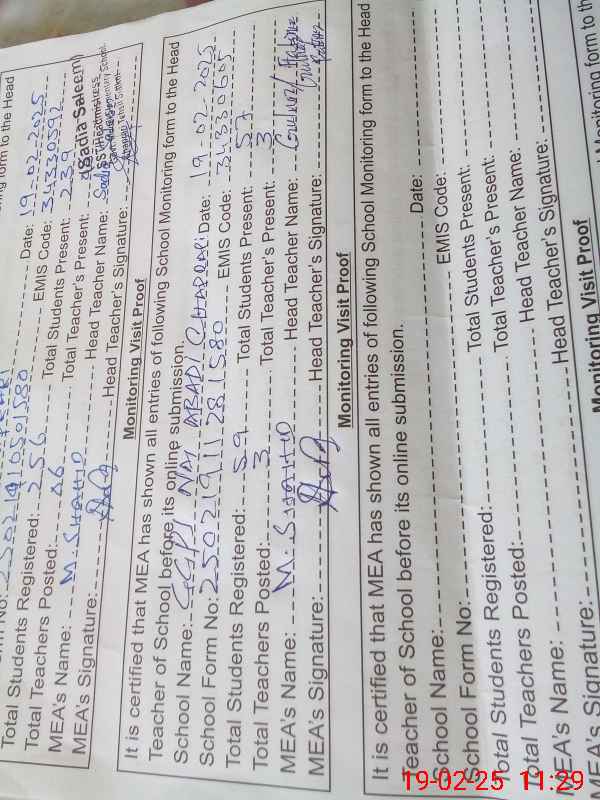 Total Students Registered: 256 Total Students Present: 239
Total Teachers Posted: 06 Total Teacher's Present:
MEA's Name: M. SHAHID Head Teacher Name:
MEA's Signature: Head Teacher's Signature:
Date: 19-02-2025
EMIS Code: 34330592
(Sadia Saleem)
Monitoring Visit Proof
It is certified that MEA has shown all entries of following School Monitoring form to the Head
Teacher of School before its online submission.
School Name: GGPS NAI ABADI CHAPRAR Date: 19-02-2025
School Form No: 25021911281580 EMIS Code: 34330605
Total Students Registered: 59 Total Students Present: 57
Total Teachers Posted: 3 Total Teacher's Present: 3
MEA's Name: M. SHAHID Head Teacher Name:
MEA's Signature: Head Teacher's Signature:
Monitoring Visit Proof
It is certified that MEA has shown all entries of following School Monitoring form to the Head
Teacher of School before its online submission.
School Name: Date:
School Form No: EMIS Code:
Total Students Registered: Total Students Present:
Total Teachers Posted: Total Teacher's Present:
MEA's Name: Head Teacher Name:
MEA's Signature: Head Teacher's Signature:
Monitoring Visit Proof
19-02-25 11:29